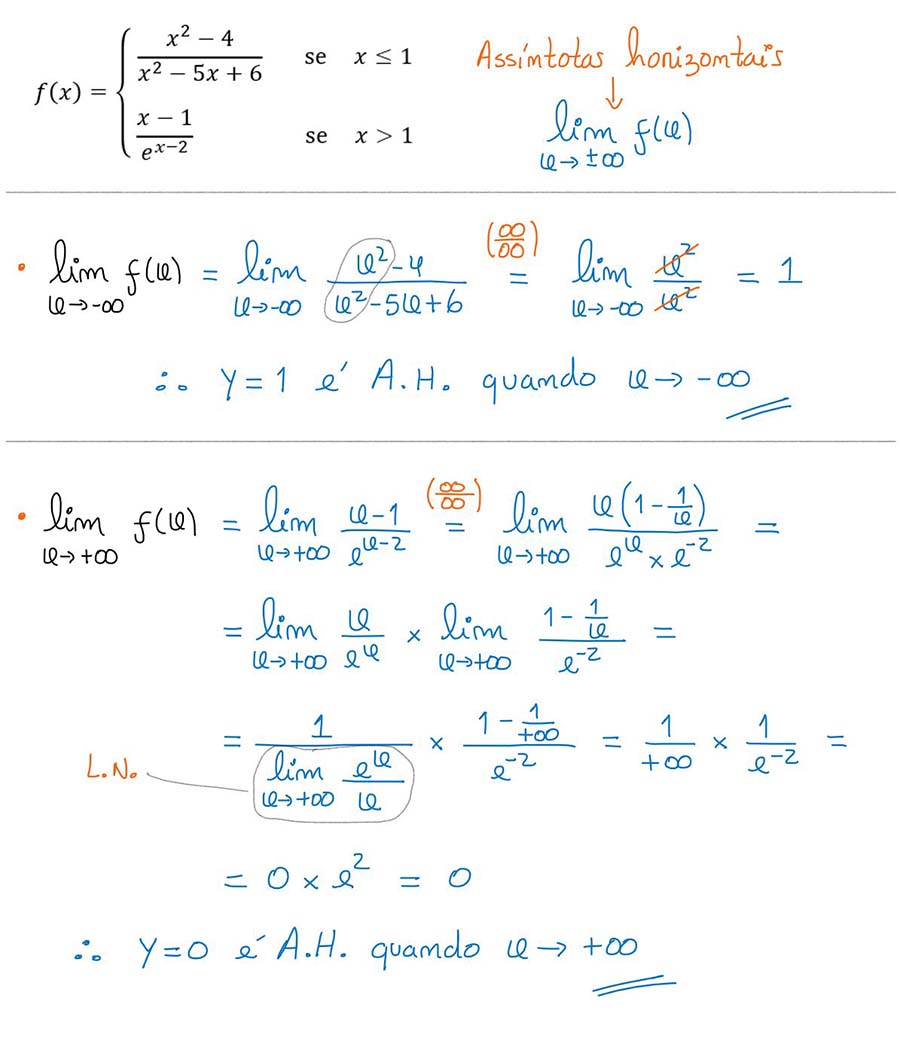 f(x) = { (x² − 4)/(x² − 5x + 6) se x ≤ 1
(x − 1)/e^(x−2) se x > 1
Assíntotas horizontais
↓
lim x→±∞ f(x)
• lim x→-∞ f(x) = lim x→-∞ (x²-4)/(x²-5x+6) (∞/∞) = lim x→-∞ x²/x² = 1
∴ y=1 é A.H. quando x→-∞
• lim x→+∞ f(x) = lim x→+∞ (x-1)/e^(x-2) (∞/∞) = lim x→+∞ x(1-1/x)/(e^x × e^-2) =
= lim x→+∞ x/e^x × lim x→+∞ (1-1/x)/e^-2 =
= 1/(lim x→+∞ e^x/x) × (1-1/+∞)/e^-2 = 1/+∞ × 1/e^-2 =
L.N.
= 0 × e² = 0
∴ y=0 é A.H. quando x→+∞